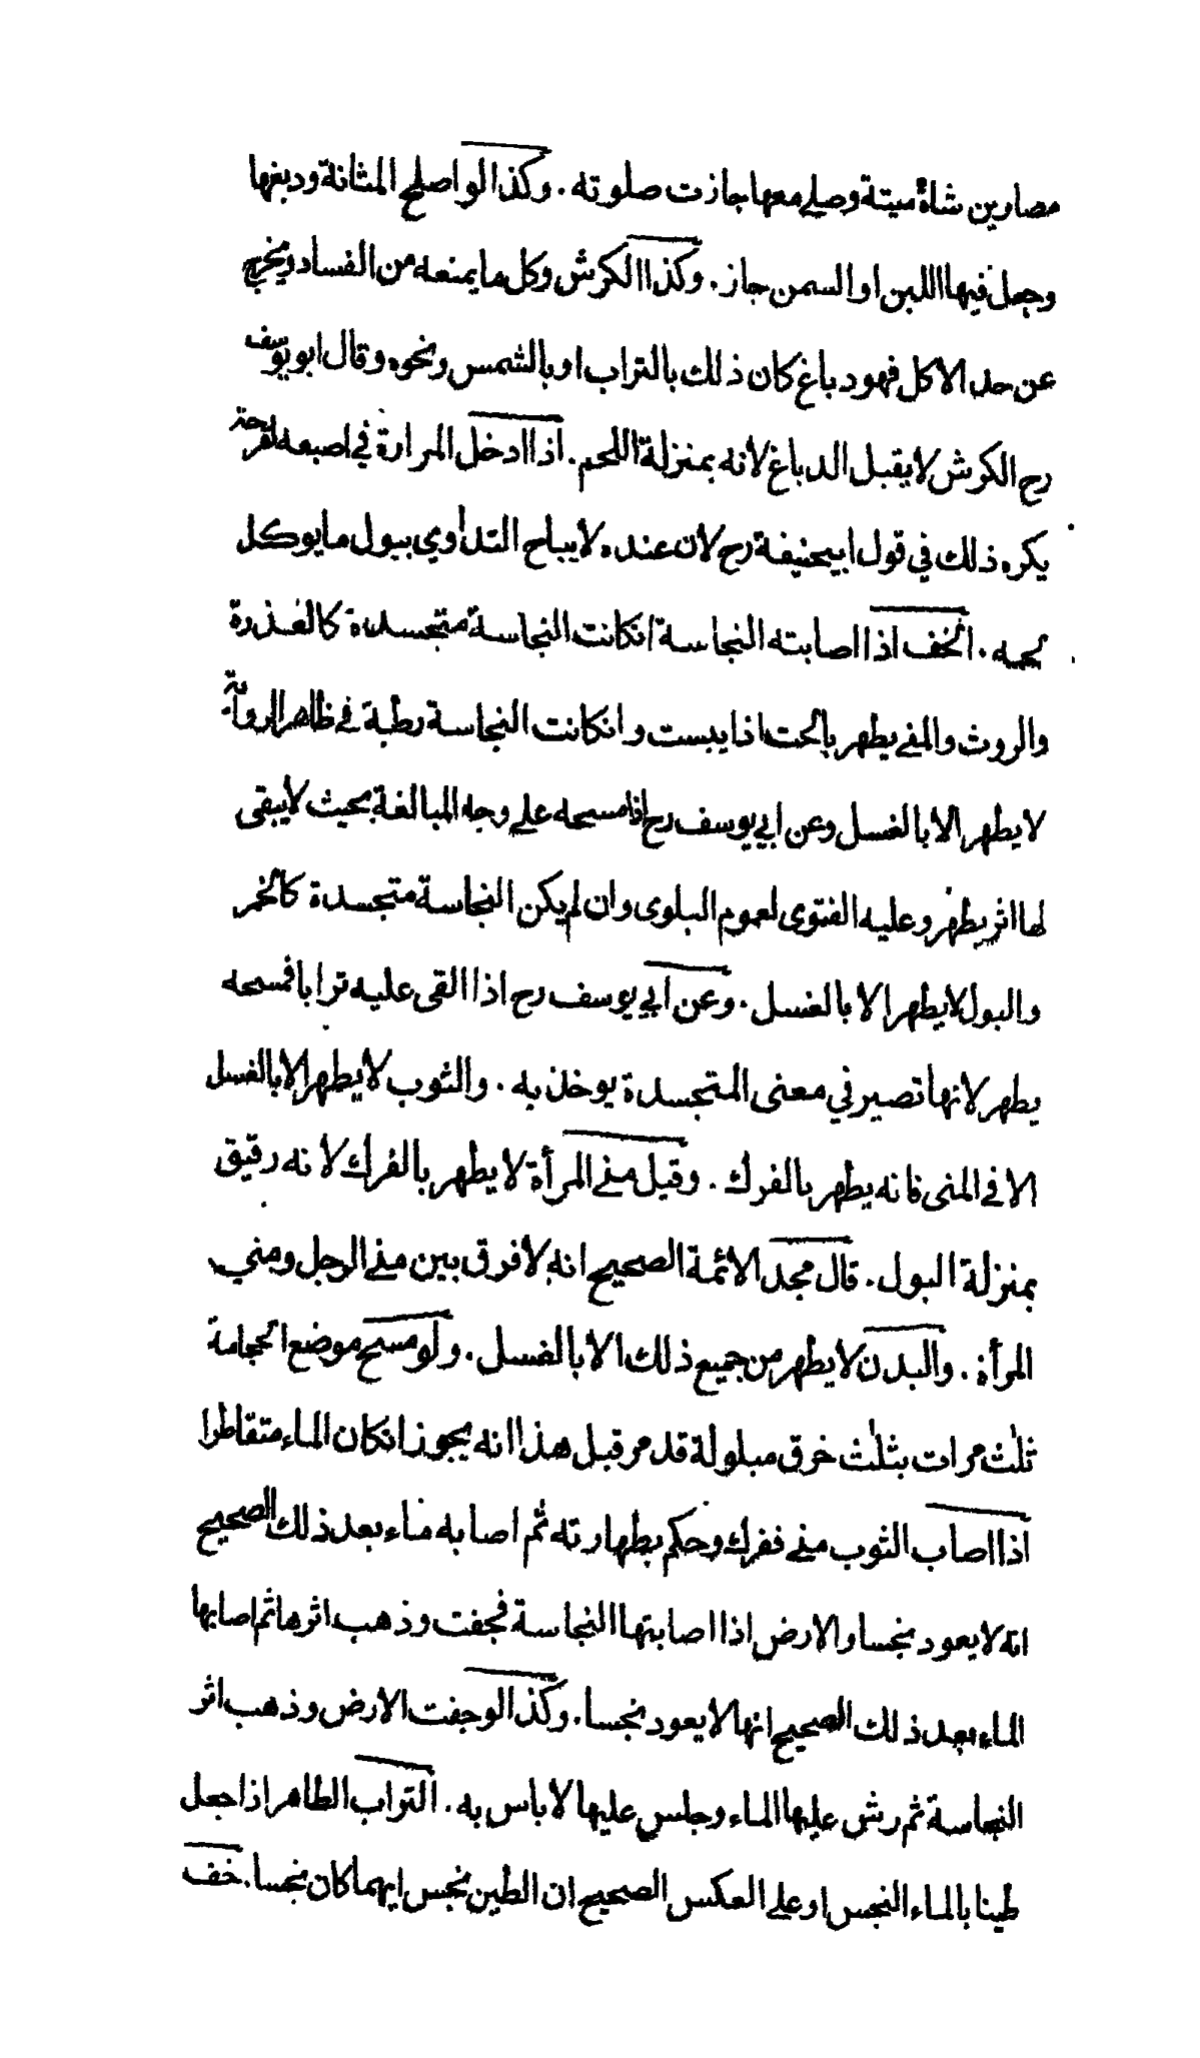 مصارين شاة ميتة وصلى معها جازت صلوته . وكذا لو اصلح المثانة ودبغها
وجعل فيها اللبن او السمن جاز . وكذا الكرش وكل ما يمنعه من الفساد ويخرج
عن حد الاكل فهو دباغ كان ذلك بالتراب او بالشمس ونحوه وقال ابو يوسف
رح الكرش لا يقبل الدباغ لانه بمنزلة اللحم . اذا ادخل المرارة في اصبعه لقرحة
يكره ذلك في قول ابيحنيفة رح لان عنده لا يباح التداوي ببول ما يوكل
لحمه . الخف اذا اصابته النجاسة انكانت النجاسة متجسدة كالعذرة
والروث والمني يطهر بالحت اذا يبست وانكانت النجاسة رطبة في ظاهر الرواية
لا يطهر الا بالغسل وعن ابي يوسف رح اذا مسحه على وجه المبالغة بحيث لا يبقى
لها اثر يطهر وعليه الفتوى لعموم البلوى وان لم يكن النجاسة متجسدة كالخمر
والبول لا يطهر الا بالغسل . وعن ابي يوسف رح اذا القى عليه ترابا فمسحه
يطهر لانها تصير في معنى المتجسدة يوخذ به . والثوب لا يطهر الا بالغسل
الا في المنى فانه يطهر بالفرك . وقيل مني المرأة لا يطهر بالفرك لانه رقيق
بمنزلة البول . قال مجد الائمة الصحيح انه لا فرق بين مني الرجل ومني
المرأة . والبدن لا يطهر من جميع ذلك الا بالغسل . ولو مسح موضع الحجامة
ثلٰث مرات بثلٰث خرق مبلولة قد مر قبل هذا انه يجوز انكان الماء متقاطرا
اذا اصاب الثوب مني ففرك وحكم بطهارته ثم اصابه ماء بعد ذلك الصحيح
انه لا يعود نجسا والارض اذا اصابتها النجاسة فجفت وذهب اثرها ثم اصابها
الماء بعد ذلك الصحيح انها لا يعود نجسا . وكذا لو جفت الارض وذهب اثر
النجاسة ثم رش عليها الماء وجلس عليها لا باس به . التراب الطاهر اذا جعل
طينا بالماء النجس او على العكس الصحيح ان الطين نجس ايهما كان نجسا . خف